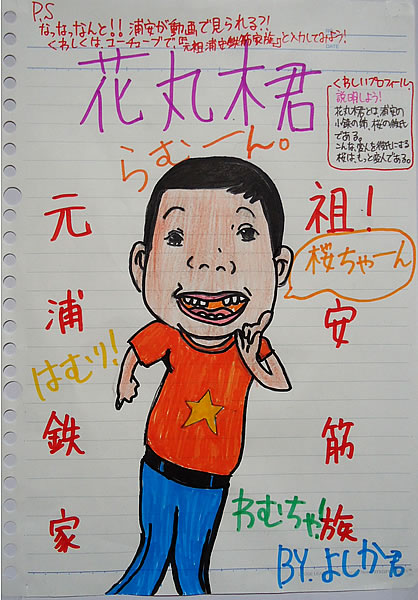 P.S
なっなっなんと!! 浦安が動画で見られる?!
くわしくは、ユーチューブで『元祖浦安鉄筋家族』と入力してみよう!
DATE
花丸木君
くわしいプロフィール
説明しよう!
花丸木君とは、浦安の
小鉄の姉、桜の彼氏
である。
こんな変人を彼氏にする
桜は、もっと変人である。
らむーん。
元 祖!
桜ちゃーん
浦 安
はむり!
鉄 筋
わむちゃ!
家 族
BY.よしか君